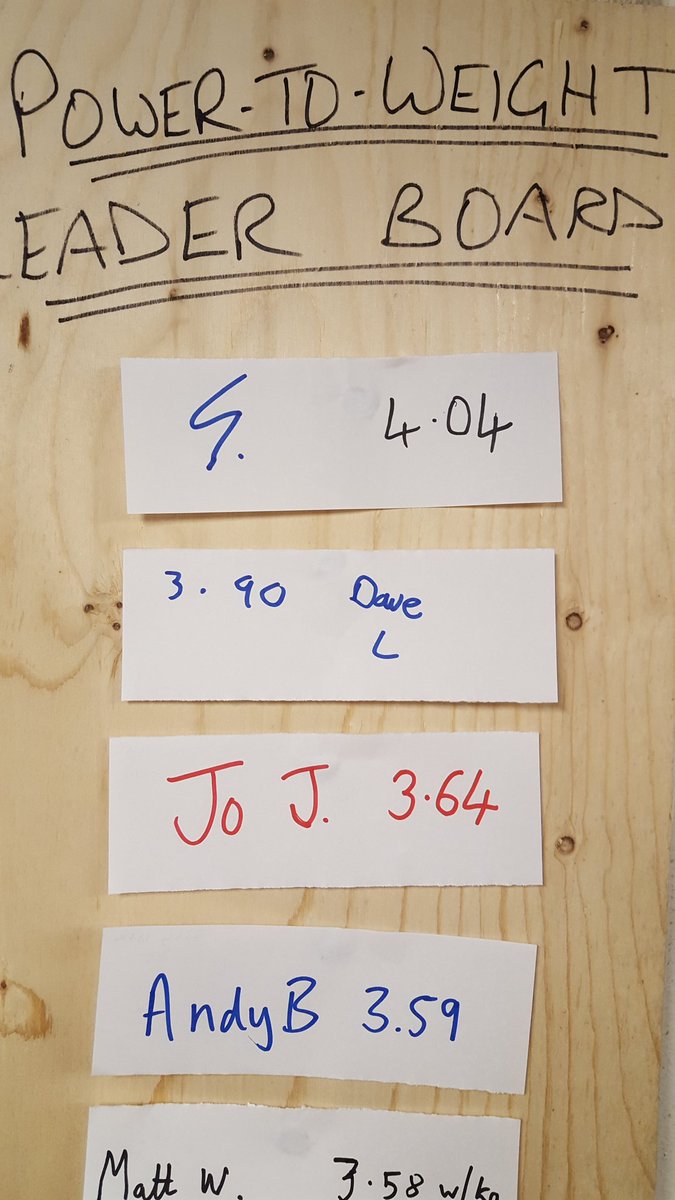 POWER-TO-WEIGHT
LEADER BOARD
S. 4.04
3.90 Dave
L
Jo J. 3.64
AndyB 3.59
Matt W. 3.58 w/kg